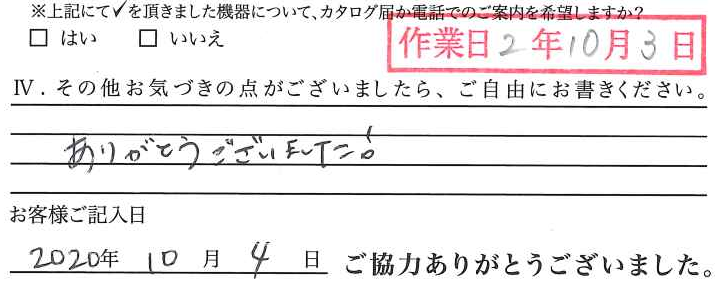 ※上記にて✓を頂きました機器について、カタログ届か電話でのご案内を希望しますか？
□ はい □ いいえ
作業日2年10月3日
Ⅳ．その他お気づきの点がございましたら、ご自由にお書きください。
ありがとうございました！
お客様ご記入日
2020年 10 月 4 日 ご協力ありがとうございました。